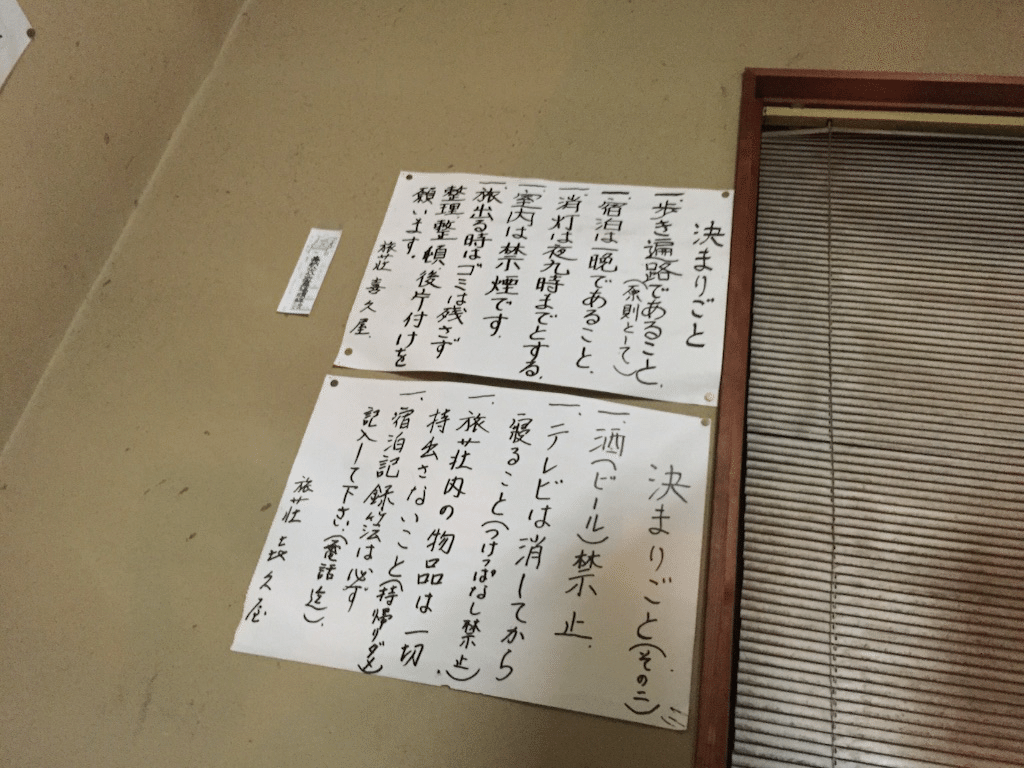 決まりごと
一、歩き遍路であること、
(原則として)
一、宿泊は一晩であること、
一、消灯は夜九時までとする、
一、室内は禁煙です、
一、旅出る時はゴミは残さず
整理整頓、後片付けを
願います、
旅荘 喜久屋
決まりごと(その二)
一、酒(ビール)禁止、
一、テレビは消してから
寝ること(つけっぱなし禁止)、
一、旅荘内の物品は一切
持出さないこと(持帰りダメ)
一、宿泊記録は必ず
記入して下さい(電話迄)、
旅荘 喜久屋